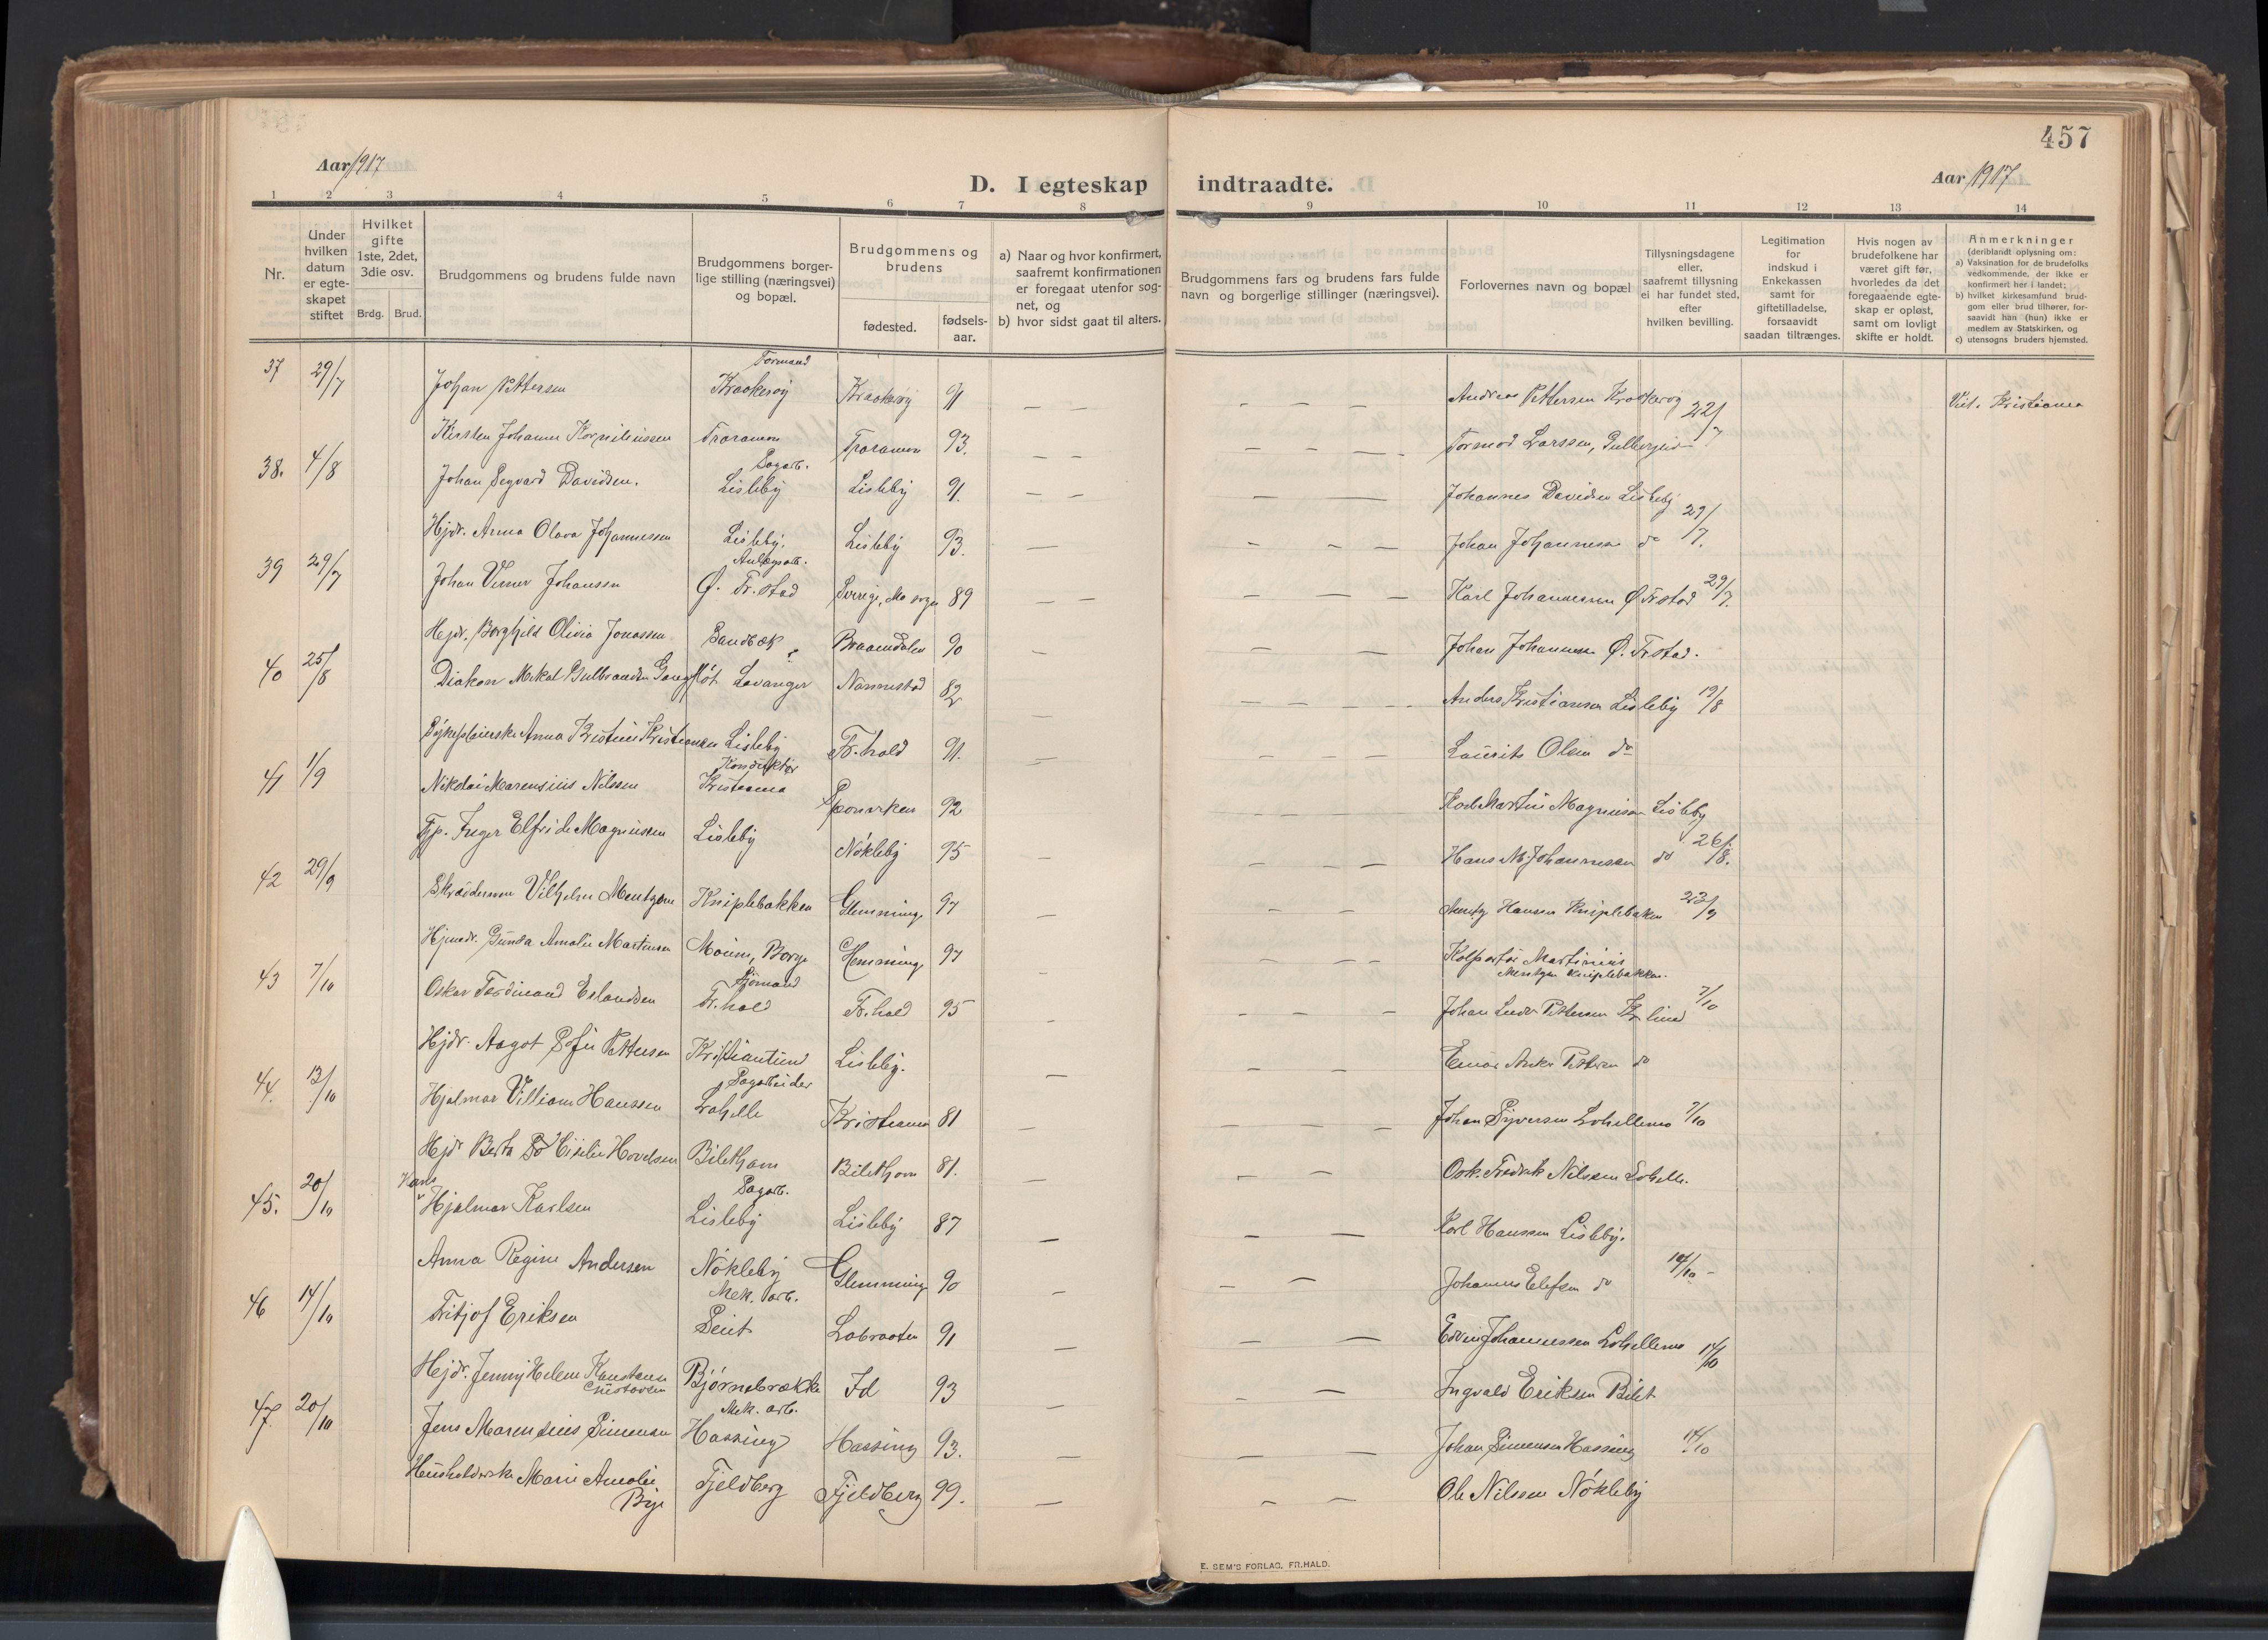 457
Aar 1917
Aar 1917
D. I egteskap indtraadte.
1 2 3 4 5 6 7 8 9 10 11 12 13 14
Nr.
Under hvilken datum er egteskapet stiftet
Hvilket gifte 1ste, 2det, 3die osv.
Brdg. Brud.
Brudgommens og brudens fulde navn
Brudgommens borgerlige stilling (næringsvei) og bopæl.
Brudgommens og brudens
fødested.
fødselsaar.
a) Naar og hvor konfirmert, saafremt konfirmationen er foregaat utenfor sognet, og
b) hvor sidst gaat til alters.
Brudgommens fars og brudens fars fulde navn og borgerlige stillinger (næringsvei).
Forlovernes navn og bopæl
Tillysningsdagene eller, saafremt tillysning ei har fundet sted, efter hvilken bevilling.
Legitimation for indskud i Enkekassen samt for giftetilladelse, forsaavidt saadan tiltrænges.
Hvis nogen av brudefolkene har været gift før, hvorledes da det foregaaende egteskap er opløst, samt om lovligt skifte er holdt.
Anmerkninger
(deriblandt oplysning om:
a) Vaksination for de brudefolks vedkommende, der ikke er konfirmert her i landet;
b) hvilket kirkesamfund brudgom eller brud tilhører, forsaavidt han (hun) ikke er medlem av Statskirken, og
c) utensogns bruders hjemsted.
37 29/7 Johan Pettersen Formand Kraakerøy Kraakerøy 91 — — — — — Andreas Pettersen Kraakerøy 22/7 Viet i Kristiania
Kirsten Johanne Korneliussen Traramen Traramen 93. — — — — — Tormod Larssen,
38. 4/8 Johan Segvard Davidsen. Sagarb. Lisleby Lisleby 91. — — — — Johannes Davidsen Lisleby
Hjdr. Anna Olava Johannessen Lisleby. Lisleby 93. — — — — Johan Johannessen do 29/7.
39 29/7 Johan Verner Johansen Anlægsarb. Ø. Fr.stad Sverige, Mo sogn 89 — — — — — Karl Johannessen Ø. Frstad 29/7.
Hejdr. Borghild Olivia Jonassen Sandbæk Braaendalen 90 — — — Johan Johannessen Ø. Frstad.
40 25/8 Diakon Mikal Gulbrandsen Gangfløt Levanger Nannestad 82 — — — — — Anders Kristiansen Lisleby 19/8
Sykepleierske Anna Kristine Kristiansen Lisleby Fr.hald 91. — — — — Laurits Olsen do
41 1/9 Nikolai Marensius Nilssen Konduktør Kristiania Sponviken 92 — — — — Karl Martin Magnussen Lisleby
Tjp. Inger Elfride Magnussen Lisleby Nøkleby 95 — — — — Hans M. Johannessen do 26/8.
42 29/9 Skræddersven Vilhelm Mentzen Kniplebakken Glemminge 97 — — — Mentz Hansen Kniplebakken 23/9
Hjmdr. Gunda Amalie Martinsen Moum, Borge Glemminge 97 — — — — Kolportør Martinius
Mentzen Kniplebakken.
43 7/10 Oskar Ferdinand Erlandsen Sjømand Fr.hald Fr.hald 95 — — — — Johan Ludv. Pettersen Kr.lund 7/10
Hjdr. Aagot Sofie Pettersen Kristianlund Lisleby. — — — Einar Anker Pettersen do
44. 13/10 Hjalmar Villiam Hanssen Sagarbeider Lahelle Kristiania 81 — — — — Johan Syversen Lahellemo 7/10
Hjdr Berta Hovelsen Bilethom Bilethom 81. — — — Osk. Fredrik Nilssen Lahelle.
45. 20/10 Hans Hjalmar Karlsen Sagarb. Lisleby Lisleby 87 — — — Karl Hanssen Lisleby.
Anna Regine Andersen Nøkleby Glemminge 90 — — — Johannes Elefsen do 14/10 -
46 14/10 Fritjof Eriksen Mek. arb. Seut Labraaten 91 — — — Edvin Johannessen Lahellemo 14/10
Hejdr. Jenny Helene Konstanse
Gustavsen Bjørnebrække Id 93 — — — Ingvald Eriksen Bilet
47. 20/10 Jens Marensius Simensen Mek. arb. Hassing Hassing 93. — — — Johan Simensen Hassing 14/10
Husholderske Marie Amalie
Bye Fjeldberg Fjeldberg 99. — — — Ole Nilssen Nøkleby
E. SEM'S FORLAG, FR.HALD.